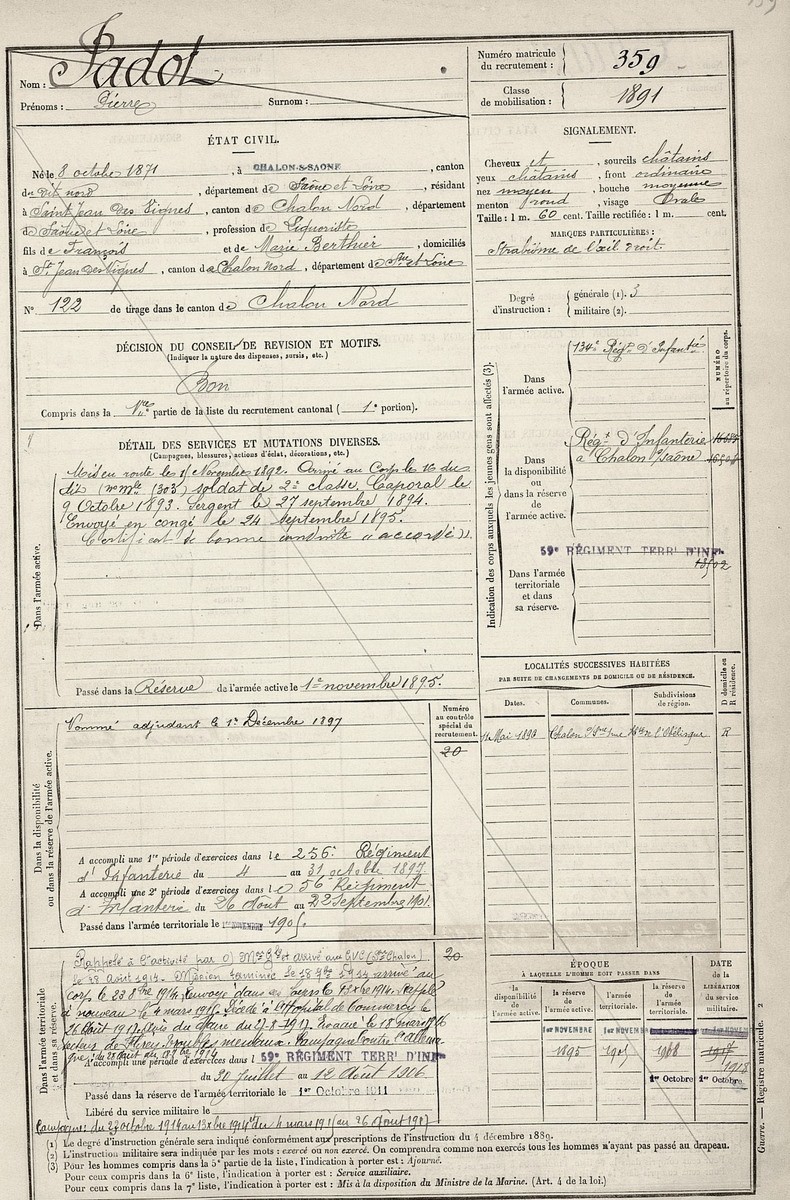 Nom : Padot
Prénoms : Pierre Surnom :
Numéro matricule
du recrutement : 359
Classe
de mobilisation : 1891
ÉTAT CIVIL.
Né le 8 octobre 1871, à CHALON-S-SAONE, canton
du dit nord, département de Saône et Loire, résidant
à Saint Jean des Vignes, canton de Chalon Nord, département
de Saône et Loire, profession de Liquoriste
fils de François et de Marie Berthier, domiciliés
à St Jean des Vignes, canton de Chalon Nord, département de Sne et Loire
N° 122 de tirage dans le canton de Chalon Nord
SIGNALEMENT.
Cheveux et, sourcils châtains
yeux châtains, front ordinaire
nez moyen, bouche moyenne
menton rond, visage Ovale
Taille : 1 m. 60 cent. Taille rectifiée : 1 m. cent.
MARQUES PARTICULIÈRES :
Strabisme de l'œil droit.
Degré
d'instruction :
générale (1). 3
militaire (2).
DÉCISION DU CONSEIL DE REVISION ET MOTIFS.
(Indiquer la nature des dispenses, sursis, etc.)
Bon
Compris dans la 1re partie de la liste du recrutement cantonal ( 1e portion).
DÉTAIL DES SERVICES ET MUTATIONS DIVERSES.
(Campagnes, blessures, actions d'éclat, décorations, etc.)
Dans l'armée active.
Mis en route le 11 Novembre 1892. Arrivé au Corps le 16 du
dit (n° mle 1303) soldat de 2e classe. Caporal le
9 Octobre 1893. Sergent le 27 septembre 1894.
Envoyé en congé le 24 septembre 1895.
Certificat de bonne conduite "accordé".
Passé dans la Réserve de l'armée active le 1er novembre 1895.
Indication des corps auxquels les jeunes gens sont affectés (3).
NUMÉRO
au répertoire du corps.
Dans
l'armée active.
134e Régt d'Infantie
Dans
la disponibilité
ou dans la réserve
de l'armée active.
Régt d'Infanterie
à Chalon s/saône
59e RÉGIMENT TERRl D'INFie
Dans l'armée
territoriale
et dans
sa réserve.
LOCALITÉS SUCCESSIVES HABITÉES
PAR SUITE DE CHANGEMENTS DE DOMICILE OU DE RÉSIDENCE.
D domicile ou
R résidence.
Dates. Communes. Subdivisions
de région.
Mai 1898 Chalon R
Dans la disponibilité
ou dans la réserve de l'armée active.
Numéro
au contrôle
spécial du
recrutement.
20
Nommé adjudant le 1er Décembre 1897
A accompli une 1re période d'exercices dans le 256e Régiment
d'Infanterie du 4 au 31 octobre 1897
A accompli une 2e période d'exercices dans le 56 Régiment
d'Infanterie du 26 Août au 22 Septembre 1901.
Passé dans l'armée territoriale le 1er NOVEMBRE 1905.
Dans l'armée territoriale
et dans sa réserve.
20
Rappelé à l'activité par O) Mon Gle et arrivé aux GVC (St Chalon)
le 28 Août 1914. Mission terminée le 18 9bre 1914 arrivé au
corps le 23 8bre 1914 Renvoyé dans ses foyers le 13 xbre 1914. Rappelé
à nouveau le 4 mars 1915. Décédé à l'Hopital de Commercy le
26 Août 1917. Avis du Maire du 27-8-1917.
Campagne contre l'Allema-
gne : du 28 Août au 18 9bre 1914
A accompli une période d'exercices dans l 59e RÉGIMENT TERRl D'INFie
du 30 Juillet au 12 Août 1906
Passé dans la réserve de l'armée territoriale le 1er Octobre 1911
Libéré du service militaire le
Campagne : du 23 octobre 1914 au 13 xbre 1914 du 4 mars 1915 au 26 Août 1917
ÉPOQUE
À LAQUELLE L'HOMME DOIT PASSER DANS
DATE
de la
LIBÉRATION
du service
militaire.
la
disponibilité
de
l'armée active.
la réserve
de
l'armée active.
l'armée
territoriale.
la réserve
de
l'armée
territoriale.
1er NOVEMBRE 1er NOVEMBRE
1895 1905 1908 1917
1918
1er Octobre 1er Octobre
(1) Le degré d'instruction générale sera indiqué conformément aux prescriptions de l'instruction du 4 décembre 1889.
(2) L'instruction militaire sera indiquée par les mots : exercé ou non exercé. On comprendra comme non exercés tous les hommes n'ayant pas passé au drapeau.
(3) Pour les hommes compris dans la 5e partie de la liste, l'indication à porter est : Ajourné.
Pour ceux compris dans la 6e liste, l'indication à porter est : Service auxiliaire.
Pour ceux compris dans la 7e liste, l'indication à porter est : Mis à la disposition du Ministre de la Marine. (Art. 4 de la loi.)
Guerre. — Registre matricule. 2